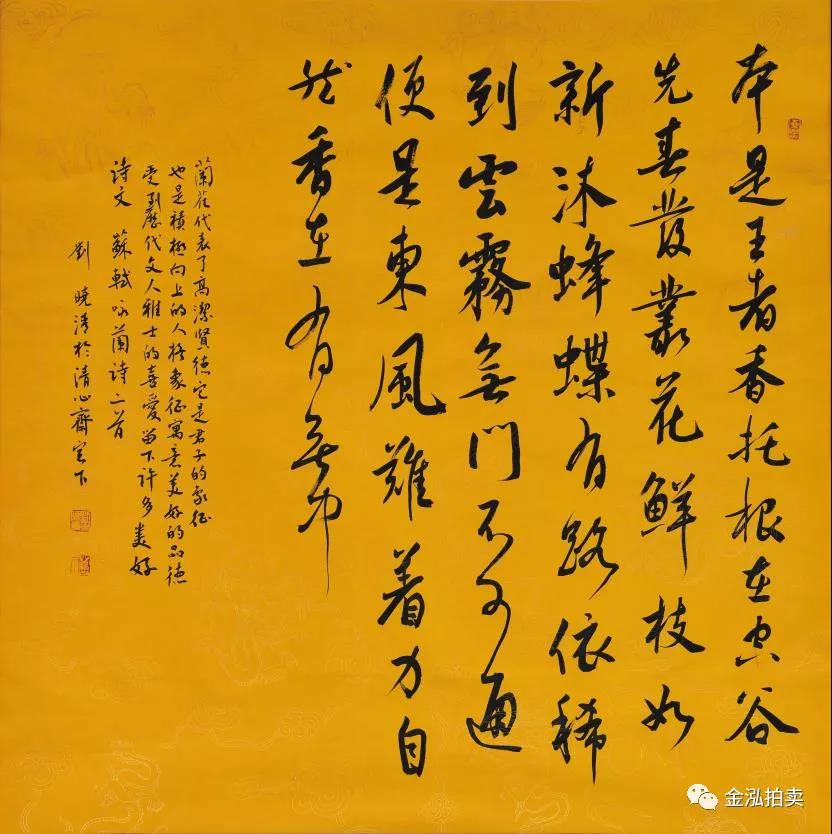 本是王者香托根在空谷
先春發叢花鮮枝如
新沐蜂蝶有路依稀
到雲霧無門不可通
便是東風難着力自
然香在有無中
蘭花代表了高潔賢德它是君子的象征
也是積極向上的人格象征寓意美好的品德
受到歷代文人雅士的喜愛留下許多美好
詩文 蘇軾咏蘭詩二首
劉曉清於清心齋窗下
金泓拍卖